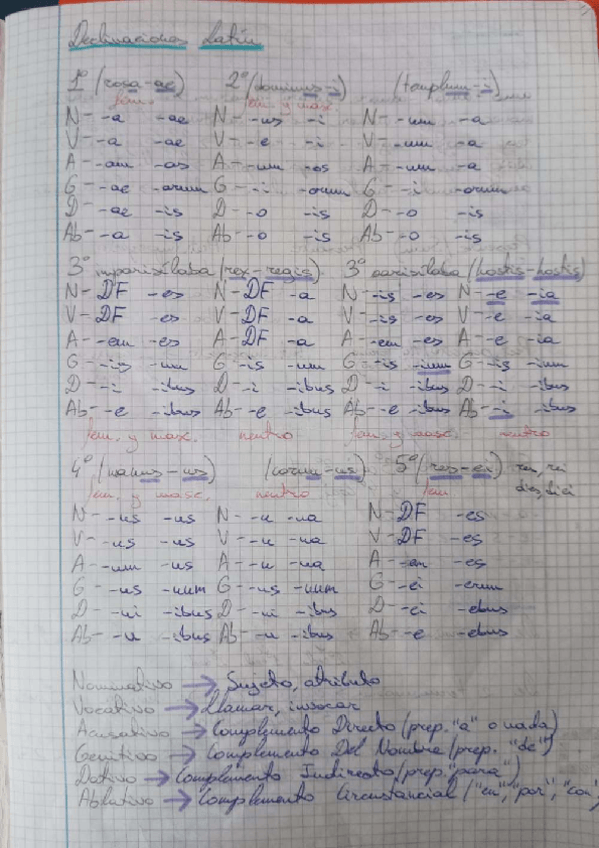 Declinaciones Latín
1º (rosa-ae) 2º (dominus-i) (templum-i)
fem. fem. y masc.
N- -a -ae N- -us -i N- -um -a
V- -a -ae V- -e -i V- -um -a
A- -am -as A- -um -os A- -um -a
G- -ae -arum G- -i -orum G- -i -orum
D- -ae -is D- -o -is D- -o -is
Ab- -a -is Ab- -o -is Ab- -o -is
3º imparisílaba (rex-regis) 3º parisílaba (hostis-hostis)
N- DF -es N- DF -a N- -is -es N- -e -ia
V- DF -es V- DF -a V- -is -es V- -e -ia
A- -em -es A- DF -a A- -em -es A- -e -ia
G- -is -um G- -is -um G- -is -ium G- -is -ium
D- -i -ibus D- -i -ibus D- -i -ibus D- -i -ibus
Ab- -e -ibus Ab- -e -ibus Ab- -e -ibus Ab- -i -ibus
fem. y masc. neutro fem. y masc. neutro
4º (manus-us) (cornu-us) 5º (res-ei) res, rei
fem. y masc. neutro fem dies, diei
N- -us -us N- -u -ua N- DF -es
V- -us -us V- -u -ua V- DF -es
A- -um -us A- -u -ua A- -em -es
G- -us -uum G- -us -uum G- -ei -erum
D- -ui -ibus D- -ui -ibus D- -ei -ebus
Ab- -u -ibus Ab- -u -ibus Ab- -e -ebus
Nominativo → Sujeto, atributo
Vocativo → Llamar, invocar
Acusativo → Complemento Directo (prep. "a" o nada)
Genitivo → Complemento Del Nombre (prep. "de")
Dativo → Complemento Indirecto (prep. "para")
Ablativo → Complemento Circunstancial ("en", "por", "con",